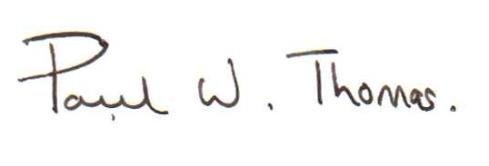 Paul W. Thomas.